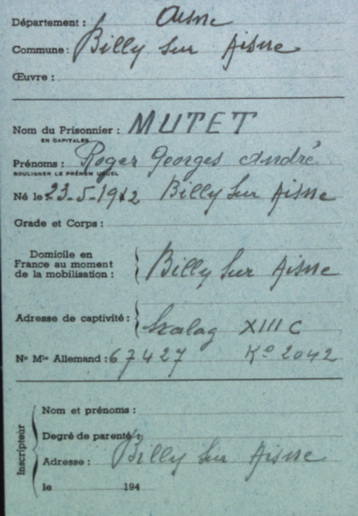 Département : Aisne
Commune : Billy sur Aisne
Œuvre :
Nom du Prisonnier : MUTET
EN CAPITALES
Prénoms : Roger Georges André
SOULIGNER LE PRÉNOM USUEL
Né le 23-5-1912 Billy sur Aisne
Grade et Corps :
Domicile en France au moment de la mobilisation : Billy sur Aisne
Adresse de captivité : Stalag XIII C
No Mle Allemand : 67427 Ko 2042
Inscripteur
Nom et prénoms :
Degré de parenté :
Adresse : Billy sur Aisne
le 194